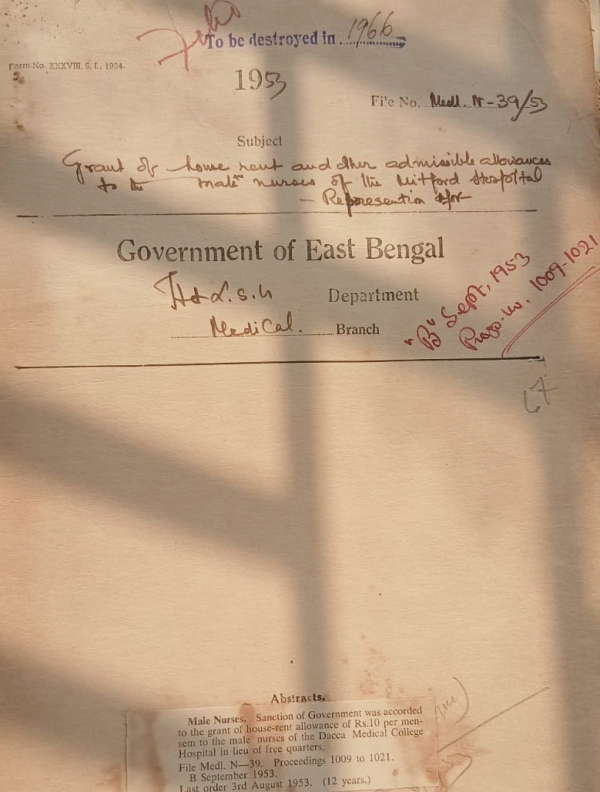 To be destroyed in 1966
Form No. XXXVIII. S. I., 1924.
1953
File No. Medl. N-39/53
Subject
Grant of house rent and other admissible allowances
to the male nurses of the Mitford Hospital
- Representation for
Government of East Bengal
Department
Medical. Branch
"B" Sept, 1953
Progs. no. 1009-1021
Abstracts.
Male Nurses. Sanction of Government was accorded
to the grant of house-rent allowance of Rs.10 per men-
sem to the male nurses of the Dacca Medical College
Hospital in lieu of free quarters.
File Medl. N—39. Proceedings 1009 to 1021.
B September 1953.
Last order 3rd August 1953. (12 years.)